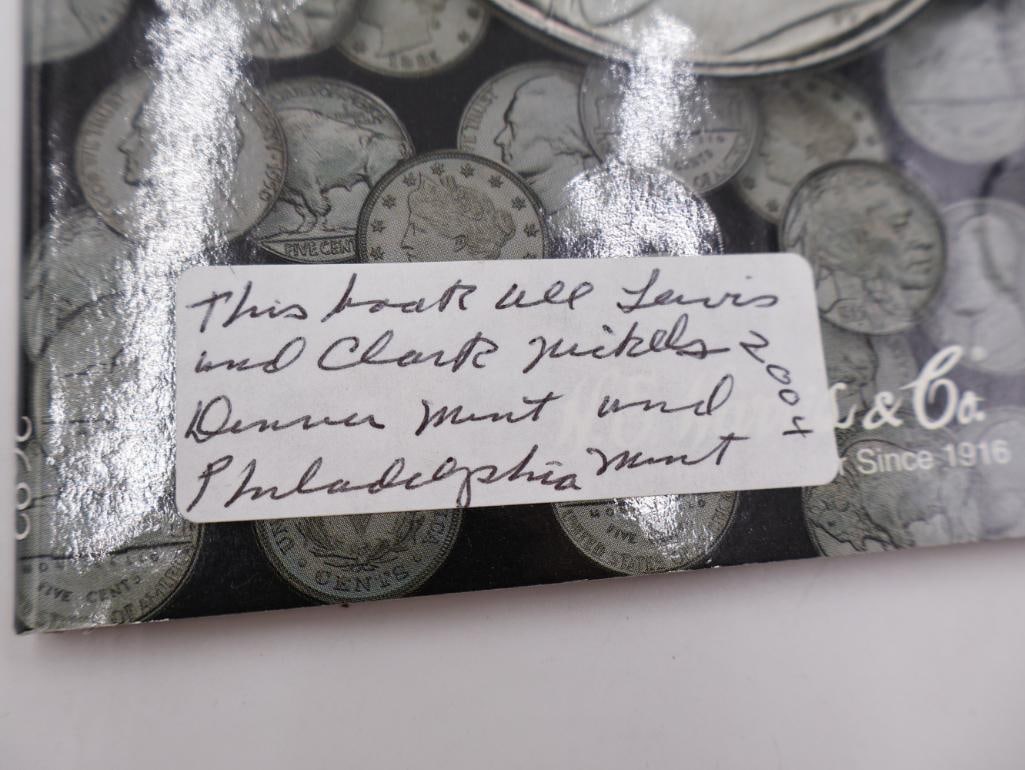 This book all Lewis
and Clark Nickels 2004
Denver Mint and
Philadelphia Mint
& Co.®
Since 1916
FIVE CENTS
CENTS
FIVE CENTS